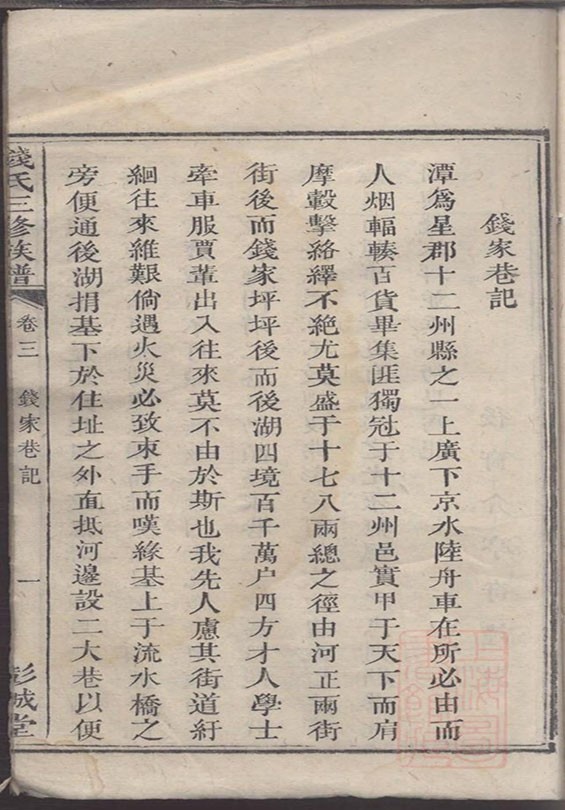 錢家巷記
潭爲星郡十二州縣之一上廣下京水陸舟車在所必由而
人烟輻輳百貨畢集匪獨冠于十二州邑實甲于天下而肩
摩轂擊絡繹不絶尤莫盛于十七八兩總之徑由河正兩街
街後而錢家坪坪後而後湖四境百千萬户四方才人學士
牽車服賈輩出入往來莫不由於斯也我先人慮其街道紆
𢌞往來維艱倘遇火災必致束手而嘆緣基上于流水橋之
旁便通後湖捐基下於住址之外直抵河邊設二大巷以便
錢氏三修族譜
卷三
錢家巷記
一
彭城堂